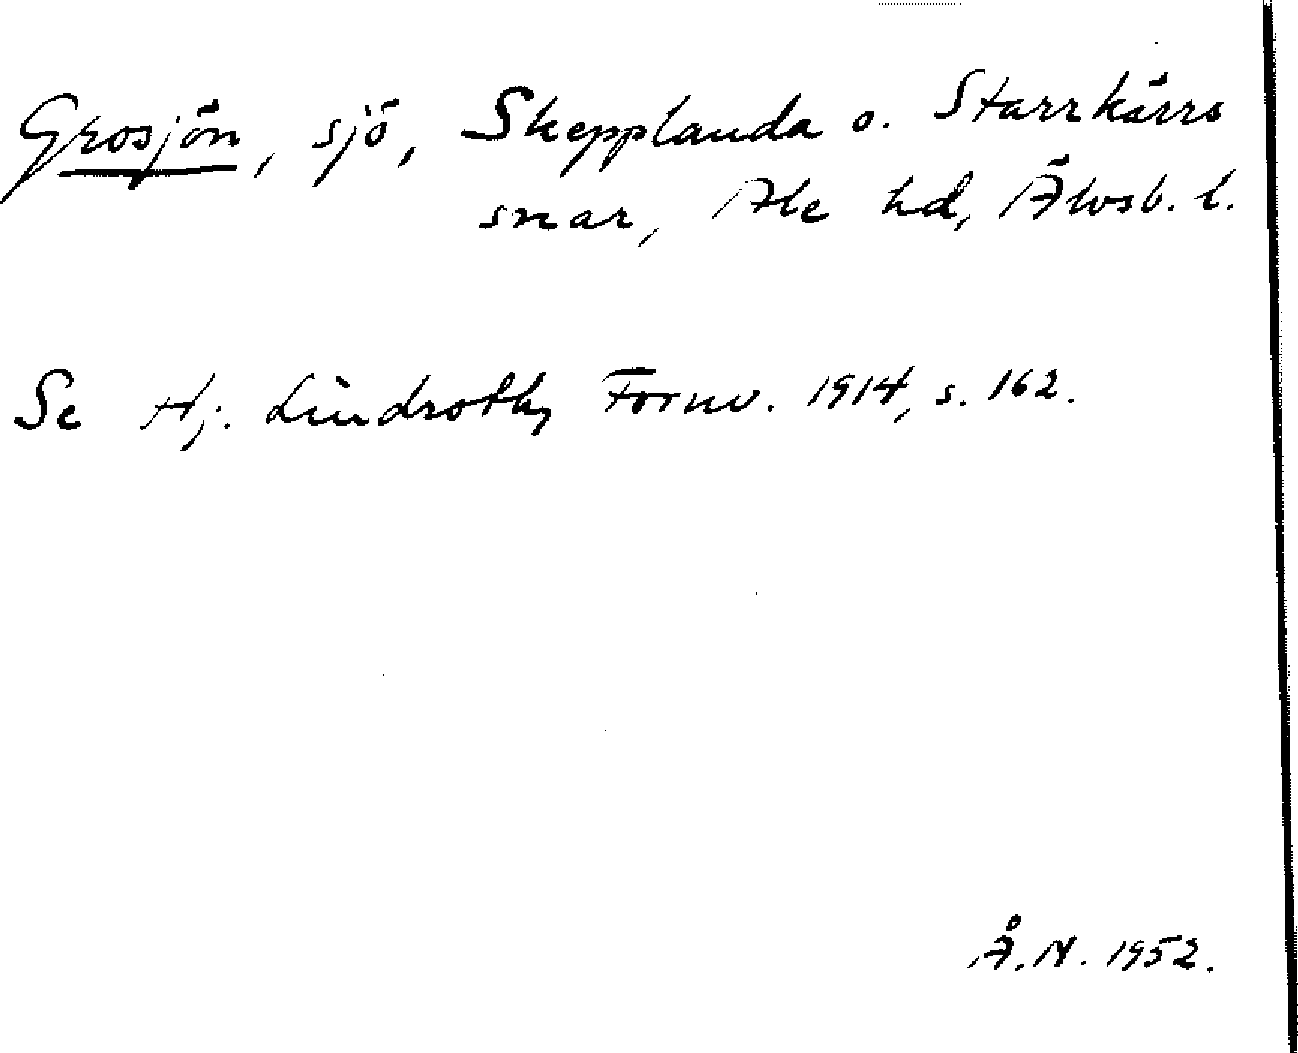 Grosjön, sjö, Skepplanda o. Starrkärrs
snar, Ale hd, Älvsb. l.
Se Hj. Lindroth, Fornv. 1914, s. 162.
Å. N. 1952.